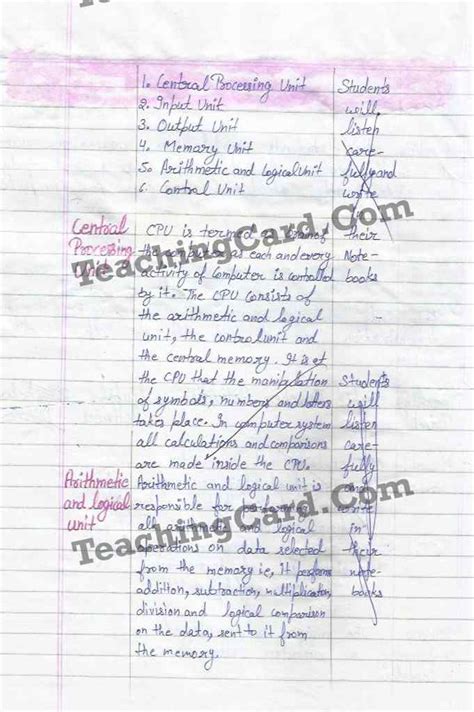 1. Central Processing Unit
2. Input Unit
3. Output Unit
4. Memory Unit
5. Arithmetic and logical Unit
6. Control Unit
Students
will
listen
care-
fully and
write
their
Note-
books
Central
Processing
Unit
CPU is termed as brain of
the computer as each and every
activity of computer is controlled
by it. The CPU consists of
the arithmetic and logical
unit, the control unit and
the central memory. It is at
the CPU that the manipulation
of symbols, numbers and letters
takes place. In computer system
all calculations and comparisons
are made inside the CPU.
Students
will
listen
care-
fully
and
write
in
their
note-
books
Arithmetic
and logical
unit
Arithmetic and logical unit is
responsible for performing
all arithmetic and logical
operations on data selected
from the memory ie, It performs
addition, subtraction, multiplication,
division and logical comparison
on the data, sent to it from
the memory.
TeachingCard.Com
TeachingCard.Com